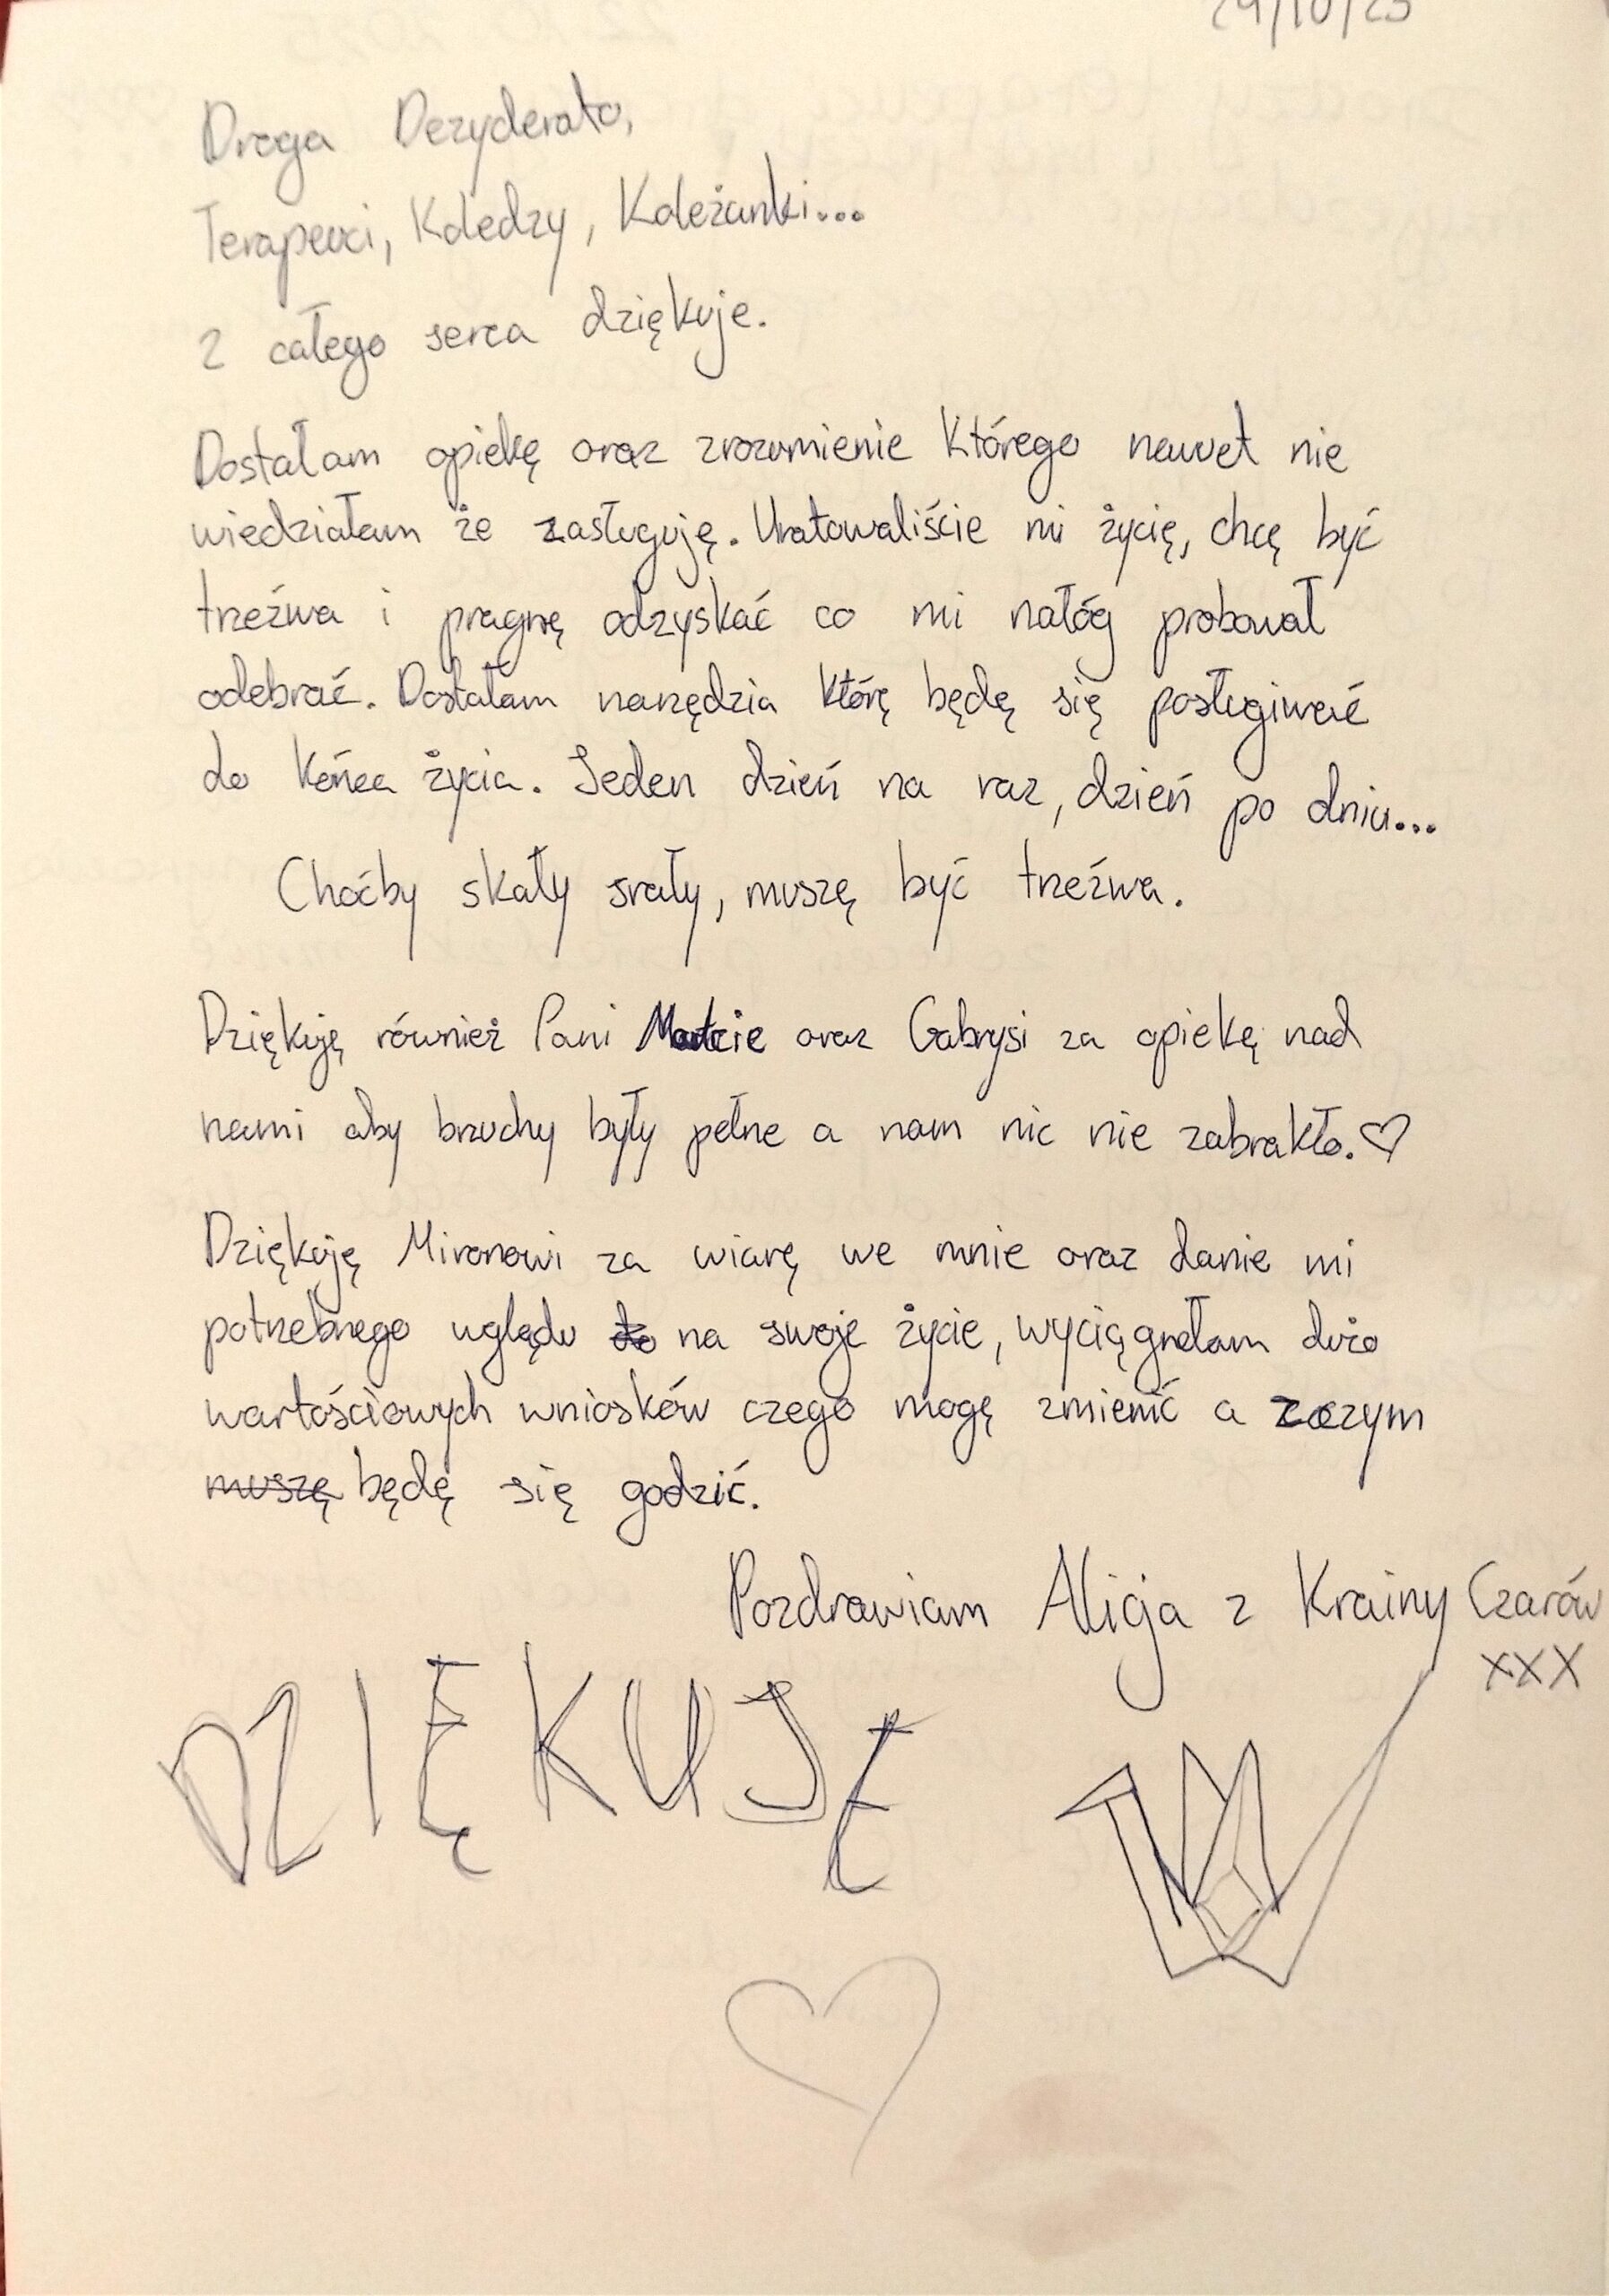 Droga Dezyderato,
Terapeuci, Koledzy, Koleżanki...
z całego serca dziękuje.
Dostałam opiekę oraz zrozumienie którego nawet nie
wiedziałam że zasługuję. Uratowaliście mi życię, chcę być
trzeźwa i pragnę odzyskać co mi nałóg probował
odebrać. Dostałam narzędzia którę będę się posługiwać
do końca życia. Jeden dzień na raz, dzień po dniu...
Choćby skały srały, muszę być trzeźwa.
Dziękuję również Pani oraz Gabrysi za opiekę nad
nami aby brzuchy były pełne a nam nic nie zabrakło.♡
Dziękuję Mironowi za wiarę we mnie oraz danie mi
potrzebnego uglądu na swoje życie, wyciągnełam dużo
wartościowych wniosków czego mogę zmienić a z czym
muszę będę się godzić.
Pozdrawiam Alicja z Krainy Czarów
xxx
DZIĘKUJĘ